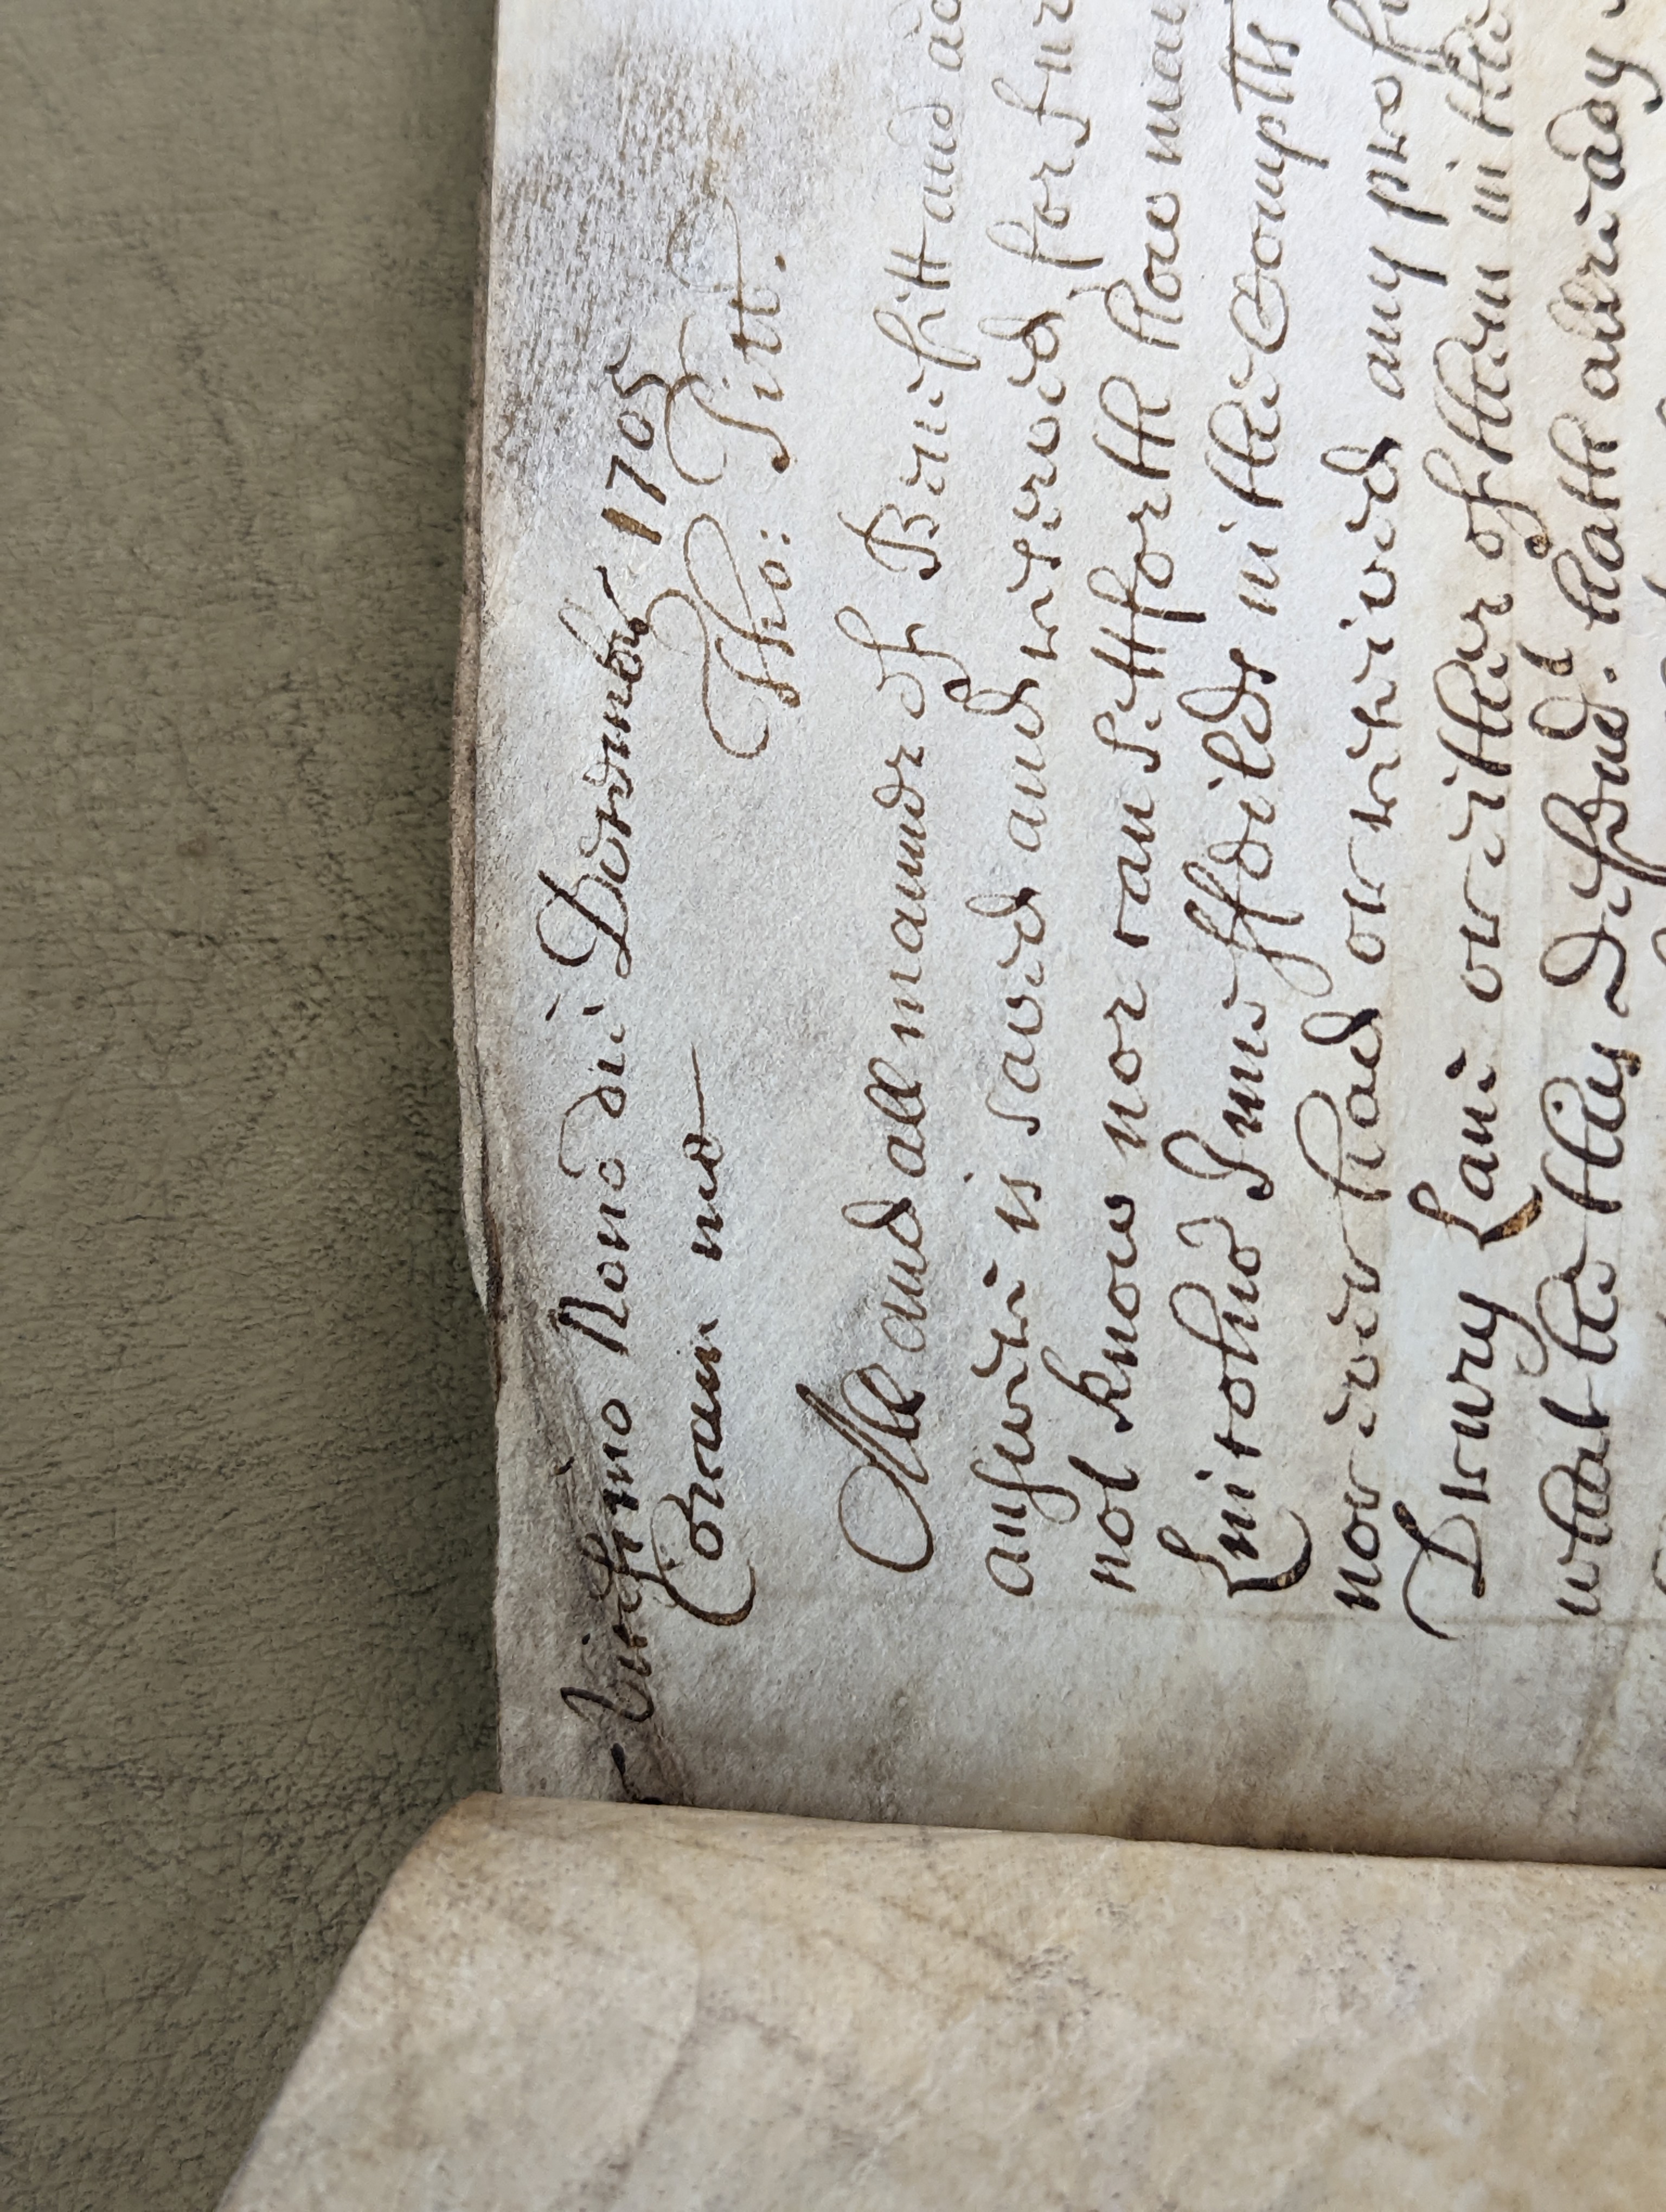 Vicesimo Nono die Decembris 1705
Coram me Tho: Pitt.
All and all manner of Benefitt and ad
answere is saved and reserved for fur
not know nor can sett forth how man
Lincolnes Inne ffeilds in the Compts
nor ever had or received any profi
Drury Lane or either of them in the
what he this Defendt. hath allready